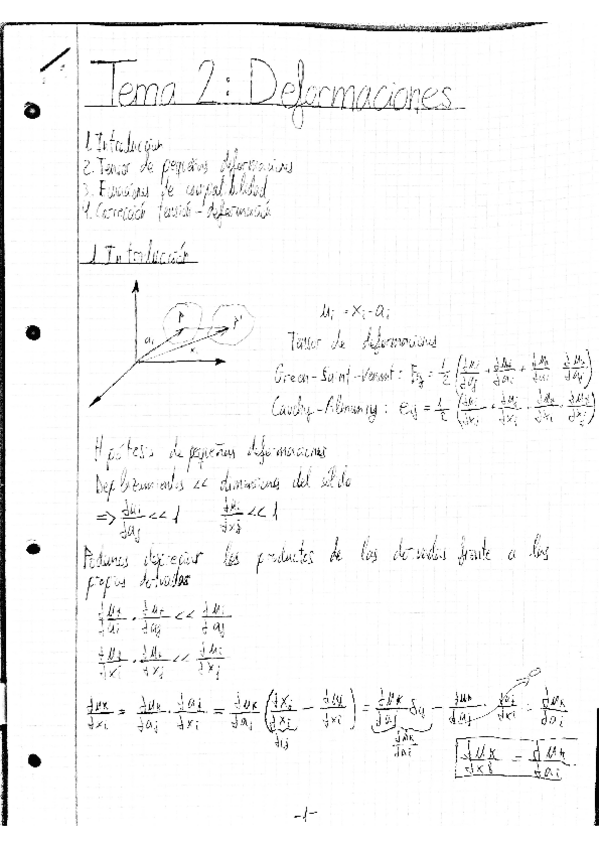 Tema 2: Deformaciones
1. Introducción
2. Tensor de pequeñas deformaciones
3. Ecuaciones de compatibilidad
4. Correción tensión-deformación
1. Introducción
P P'
a_i x_i
u_i = x_i - a_i
Tensor de deformaciones
Green-Saint-Venant: E_ij = 1/2 (∂u_i/∂a_j + ∂u_j/∂a_i + ∂u_k/∂a_i ∂u_k/∂a_j)
Cauchy-Almansy: e_ij = 1/2 (∂u_i/∂x_j + ∂u_j/∂x_i - ∂u_k/∂x_i · ∂u_k/∂x_j)
Hipótesis de pequeñas deformaciones
Desplazamientos << dimensiones del sólido
=> ∂u_i/∂a_j << 1 ∂u_i/∂x_j << 1
Podemos despreciar los productos de las derivadas frente a las
propias derivadas
∂u_k/∂a_i · ∂u_k/∂a_j << ∂u_i/∂a_j
∂u_k/∂x_i · ∂u_k/∂x_j << ∂u_i/∂x_j
∂u_k/∂x_i = ∂u_k/∂a_j · ∂a_j/∂x_i = ∂u_k/∂a_j (∂x_j/∂x_i - ∂u_j/∂x_i) = ∂u_k/∂a_j δ_ij - ∂u_k/∂a_j · ∂u_j/∂x_i = ∂u_k/∂a_i
δ_ij ∂u_k/∂a_i 0
-1-